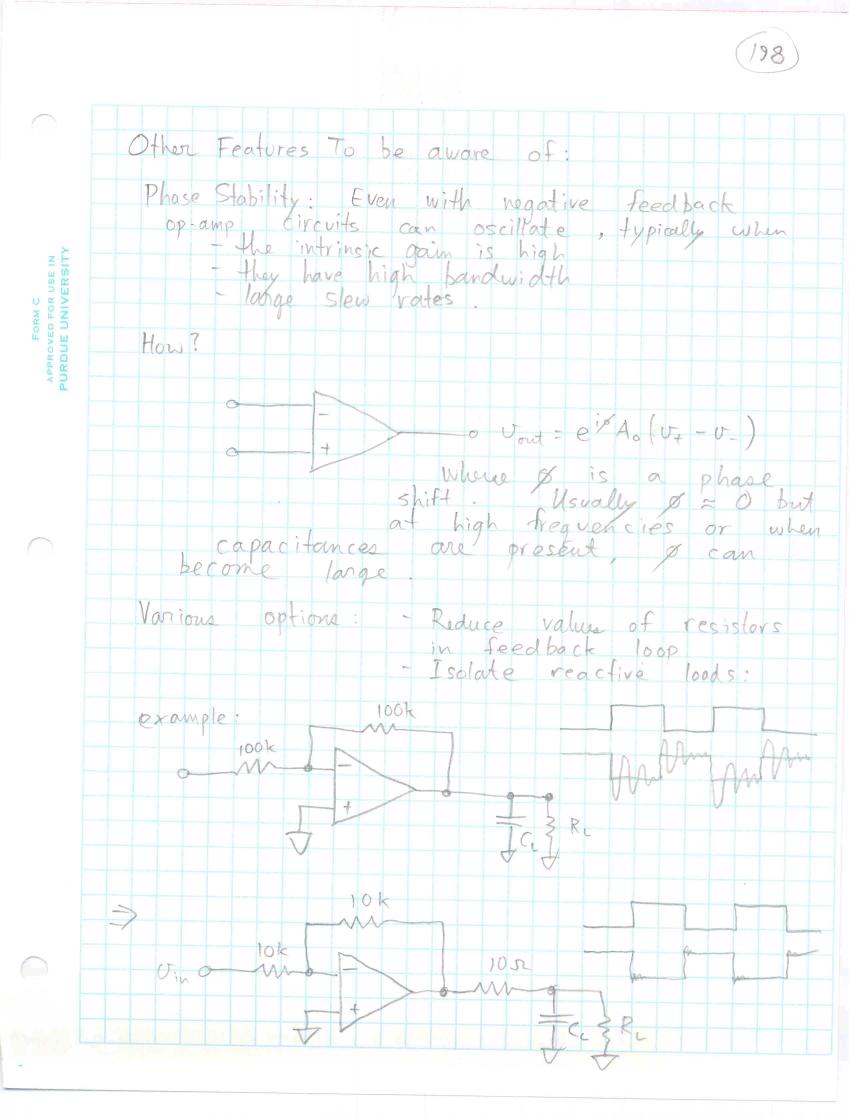 198
Other Features To be aware of:
Phase Stability: Even with negative feedback
op-amp circuits can oscillate, typically when
- the intrinsic gain is high
- they have high bandwidth
- large slew rates.
FORM C
APPROVED FOR USE IN
PURDUE UNIVERSITY
How?
−
+
v_out = e^{iø} A_o (v_+ - v_-)
where ø is a phase
shift. Usually ø ≈ 0 but
at high frequencies or when
capacitances are present, ø can
become large.
Various options: - Reduce values of resistors
in feedback loop
- Isolate reactive loads:
example:
100k
100k
−
+
C_L
R_L
⇒
10k
10k
v_in
−
+
10Ω
C_L
R_L